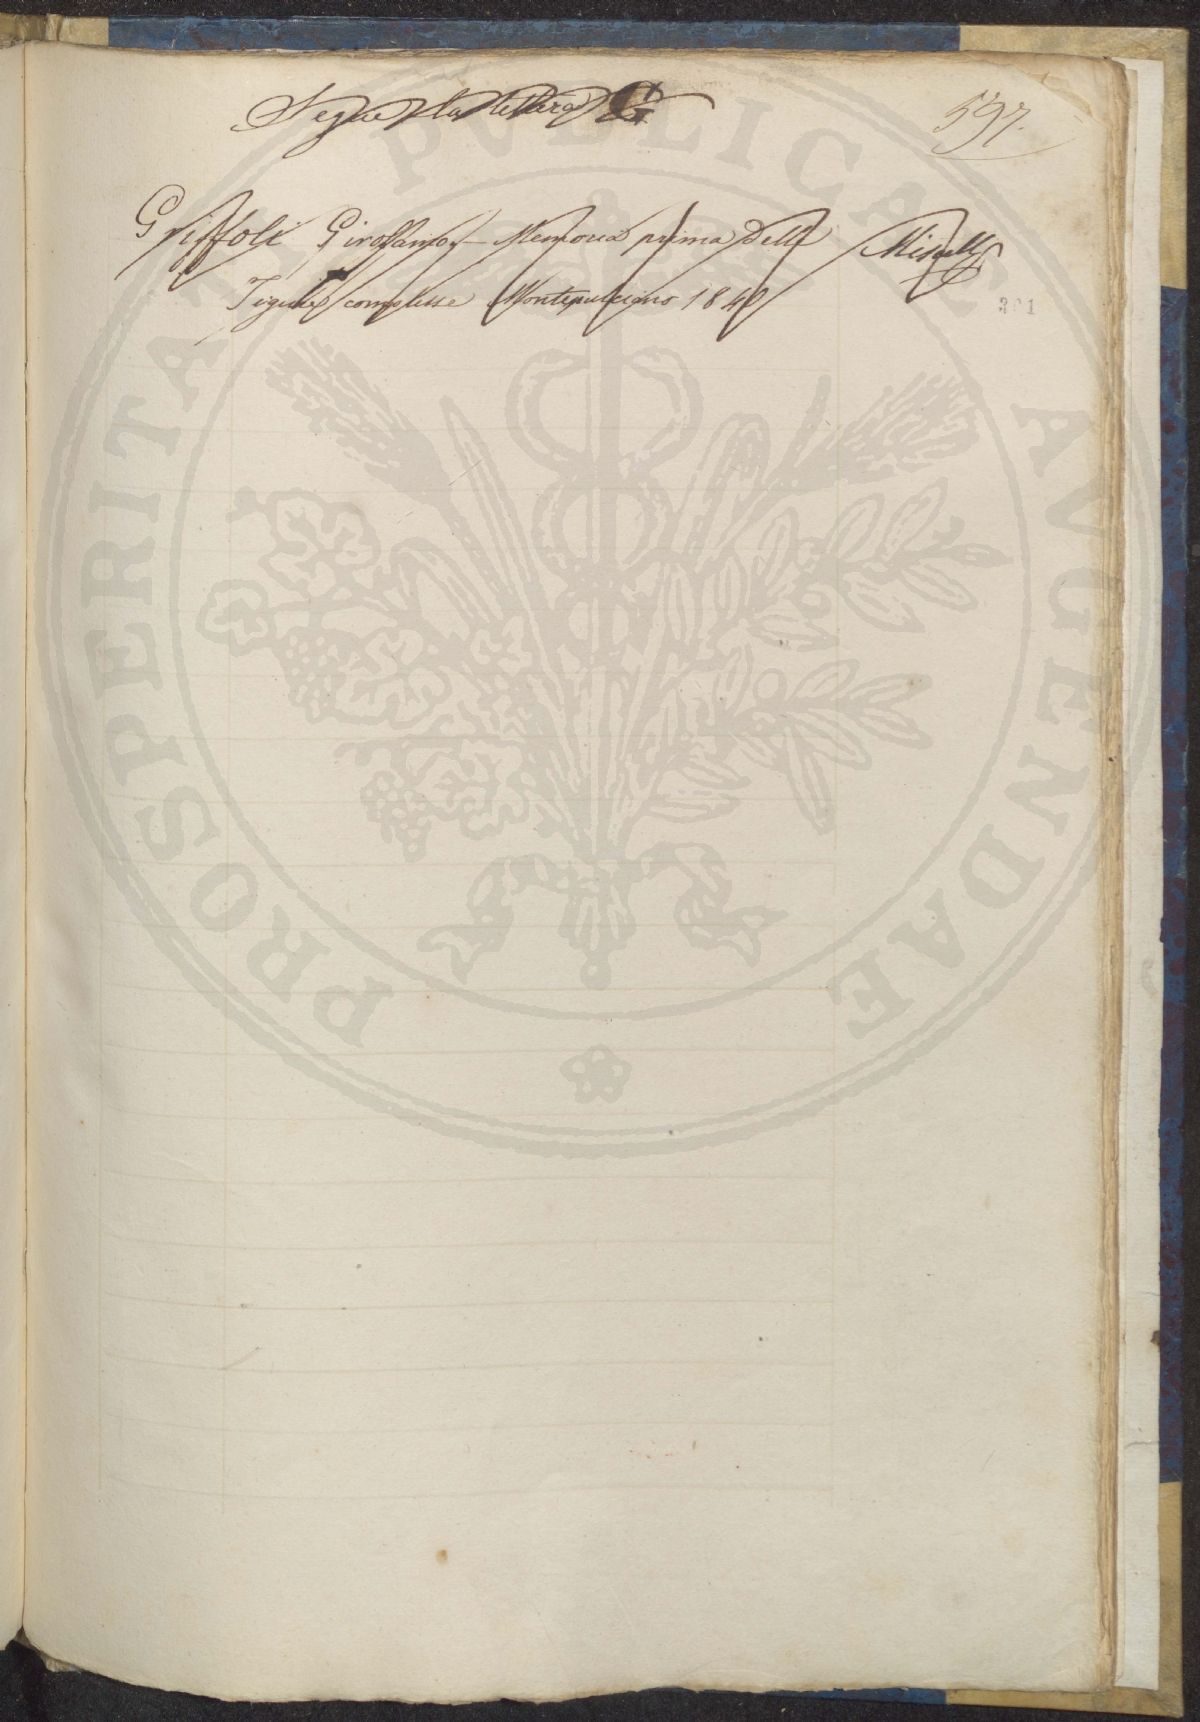 Segue la lettera G
597.
Griffoli Girolamo - Memoria prima delle Miscell
Figure complesse Montepulciano 1840
301
PROSPERITATI PVBLICAE AVGENDAE